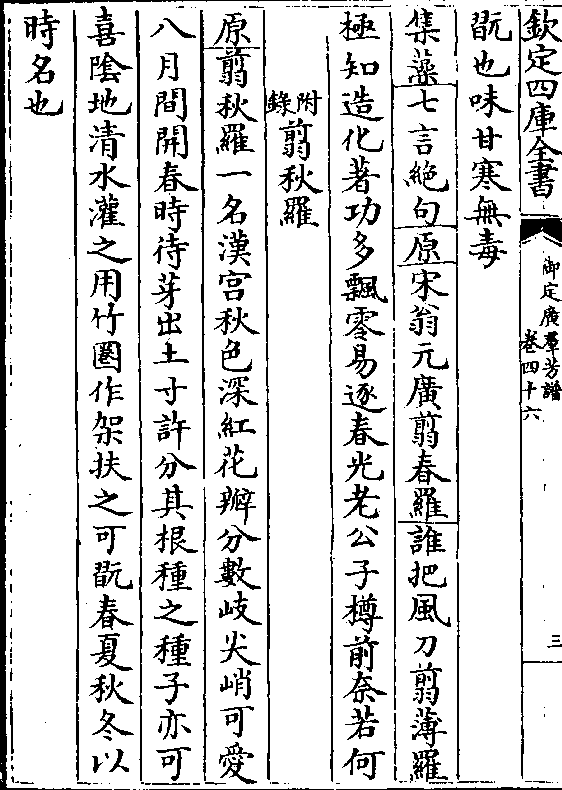 欽定四庫全書
御定廣羣芳譜
卷四十六
三
翫也味甘寒無毒
集藻七言絶句原宋翁元廣翦春羅誰把風刀翦薄羅
極知造化著功多飄零易逐春光老公子樽前奈若何
附錄翦秋羅
原翦秋羅一名漢宫秋色深紅花瓣分數岐尖峭可愛
八月間開春時待芽出土寸許分其根種之種子亦可
喜隂地清水灌之用竹圏作架扶之可翫春夏秋冬以
時名也